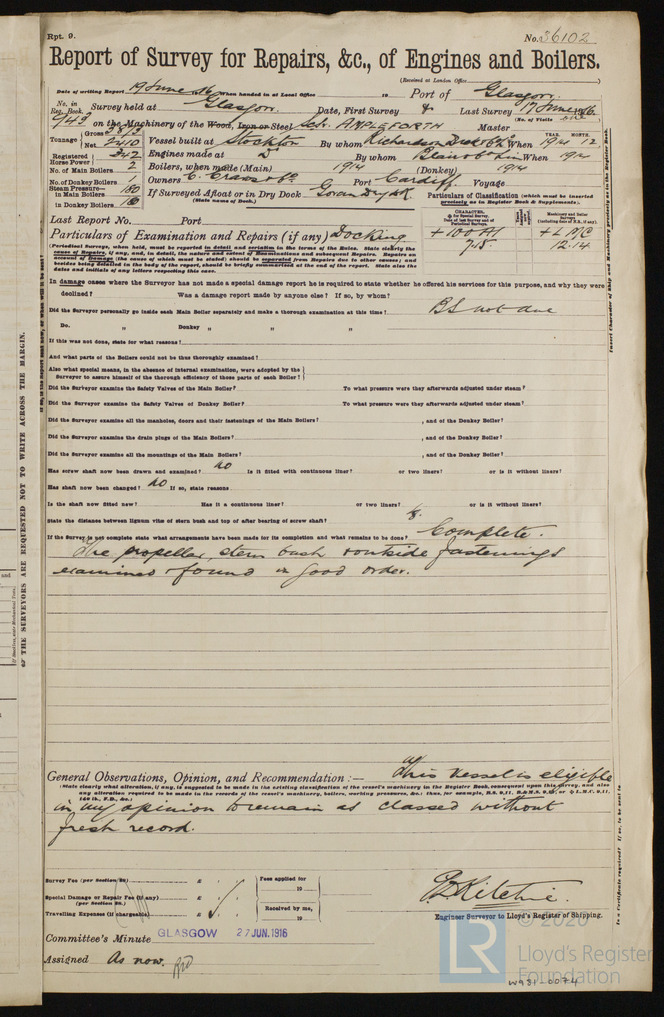 Rpt. 9.
No. 36102
Report of Survey for Repairs, &c., of Engines and Boilers.
(Received at London Office
Date of writing Report 19 June 1916 When handed in at Local Office 19 Port of Glasgow.
No. in Reg. Book. Survey held at Glasgow. Date, First Survey & Last Survey 17 June 1916.
(No. of Visits one)
943 on the Machinery of the Wood, Iron or Steel Scr. AMPLEFORTH Master
Tonnage Gross 3873 Net 2410 Vessel built at Stockton By whom Richardson Duck & Co Ld When YEAR. 1914 MONTH. 12
Registered Horse Power 342 Engines made at Do By whom Blair & Co Lim When 1914
No. of Main Boilers 2 Boilers, when made (Main) 1914 (Donkey) 1914
No. of Donkey Boilers 1 Owners Port Cardiff. Voyage
Steam Pressure— in Main Boilers 180 If Surveyed Afloat or in Dry Dock Govan Dry Dk
(State name of Dock.)
in Donkey Boilers
Particulars of Classification (which must be inserted precisely as in Register Book & Supplements).
Last Report No. Port
Particulars of Examination and Repairs (if any) Docking
+ 100 A1 + LMC
7.15 12.14
(Periodical Surveys, when held, must be reported in detail and seriatim in the terms of the Rules. State clearly the cause of Repairs, if any, and, in detail, the nature and extent of Examinations and subsequent Repairs. Repairs on account of Damage (the cause of which must be stated) should be separated from Repairs due to other causes; and besides being detailed in the body of the report, should be briefly summarised at the end of the report. State also the dates and initials of any letters respecting this case.
In damage cases where the Surveyor has not made a special damage report he is required to state whether he offered his services for this purpose, and why they were
declined? Was a damage report made by anyone else? If so, by whom?
Did the Surveyor personally go inside each Main Boiler separately and make a thorough examination at this time? BS not due
Do. „ Donkey „ „ „
If this was not done, state for what reasons?
And what parts of the Boilers could not be thoroughly examined?
Also what special means, in the absence of internal examination, were adopted by the
Surveyor to assure himself of the thorough efficiency of those parts of each Boiler?
Did the Surveyor examine the Safety Valves of the Main Boiler? To what pressure were they afterwards adjusted under steam?
Did the Surveyor examine the Safety Valves of Donkey Boiler? To what pressure were they afterwards adjusted under steam?
Did the Surveyor examine all the manholes, doors and their fastenings of the Main Boilers? , and of the Donkey Boiler?
Did the Surveyor examine the drain plugs of the Main Boilers? , and of the Donkey Boiler?
Did the Surveyor examine all the mountings of the Main Boilers? , and of the Donkey Boiler?
Has screw shaft now been drawn and examined? no Is it fitted with continuous liner? or two liners? or is it without liners?
Has shaft now been changed? no If so, state reasons
Is the shaft now fitted new? Has it a continuous liner? or two liners? or is it without liners?
State the distance between lignum vitæ of stern bush and top of after bearing of screw shaft?
If the Survey is not complete state what arrangements have been made for its completion and what remains to be done? Complete.
The propeller, stern bush & outside fastenings
examined & found in good order.
General Observations, Opinion, and Recommendation:— This vessel is eligible
(State clearly what alteration, if any, is suggested to be made in the existing classification of the vessel's machinery in the Register Book, consequent upon this survey, and also
any alteration required to be made in the records of the vessel's machinery, boilers, working pressures, &c.; thus, for example, B.S. 9,11, B.&M.S. 9,11, or L.M.C. 9,11.
in my opinion to remain as classed without
fresh record.
Survey Fee (per Section 28) £ : : Fees applied for
Special Damage or Repair Fee (if any) £ : : 19
(per Section 28.)
Travelling Expenses (if chargeable) £ : : Received by me, 19
Ritchie.
Engineer Surveyor to Lloyd's Register of Shipping.
Committee's Minute GLASGOW 27 JUN. 1916
Assigned As now.
© 2020
LR Lloyd's Register
Foundation
W931-0074
or THE SURVEYORS ARE REQUESTED NOT TO WRITE ACROSS THE MARGIN.